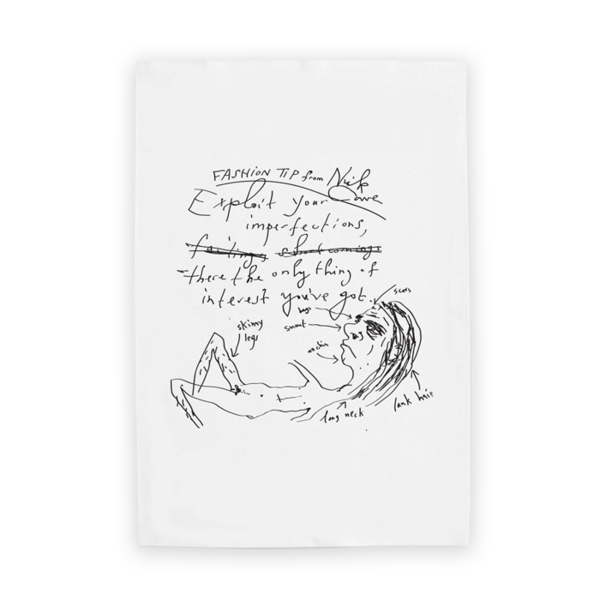 FASHION TIP from Nick Cave
Exploit your
imperfections,
failings shortcomings
there the only thing of
interest you've got.
scars
skinny
legs
snout
no chin
long neck
lank hair